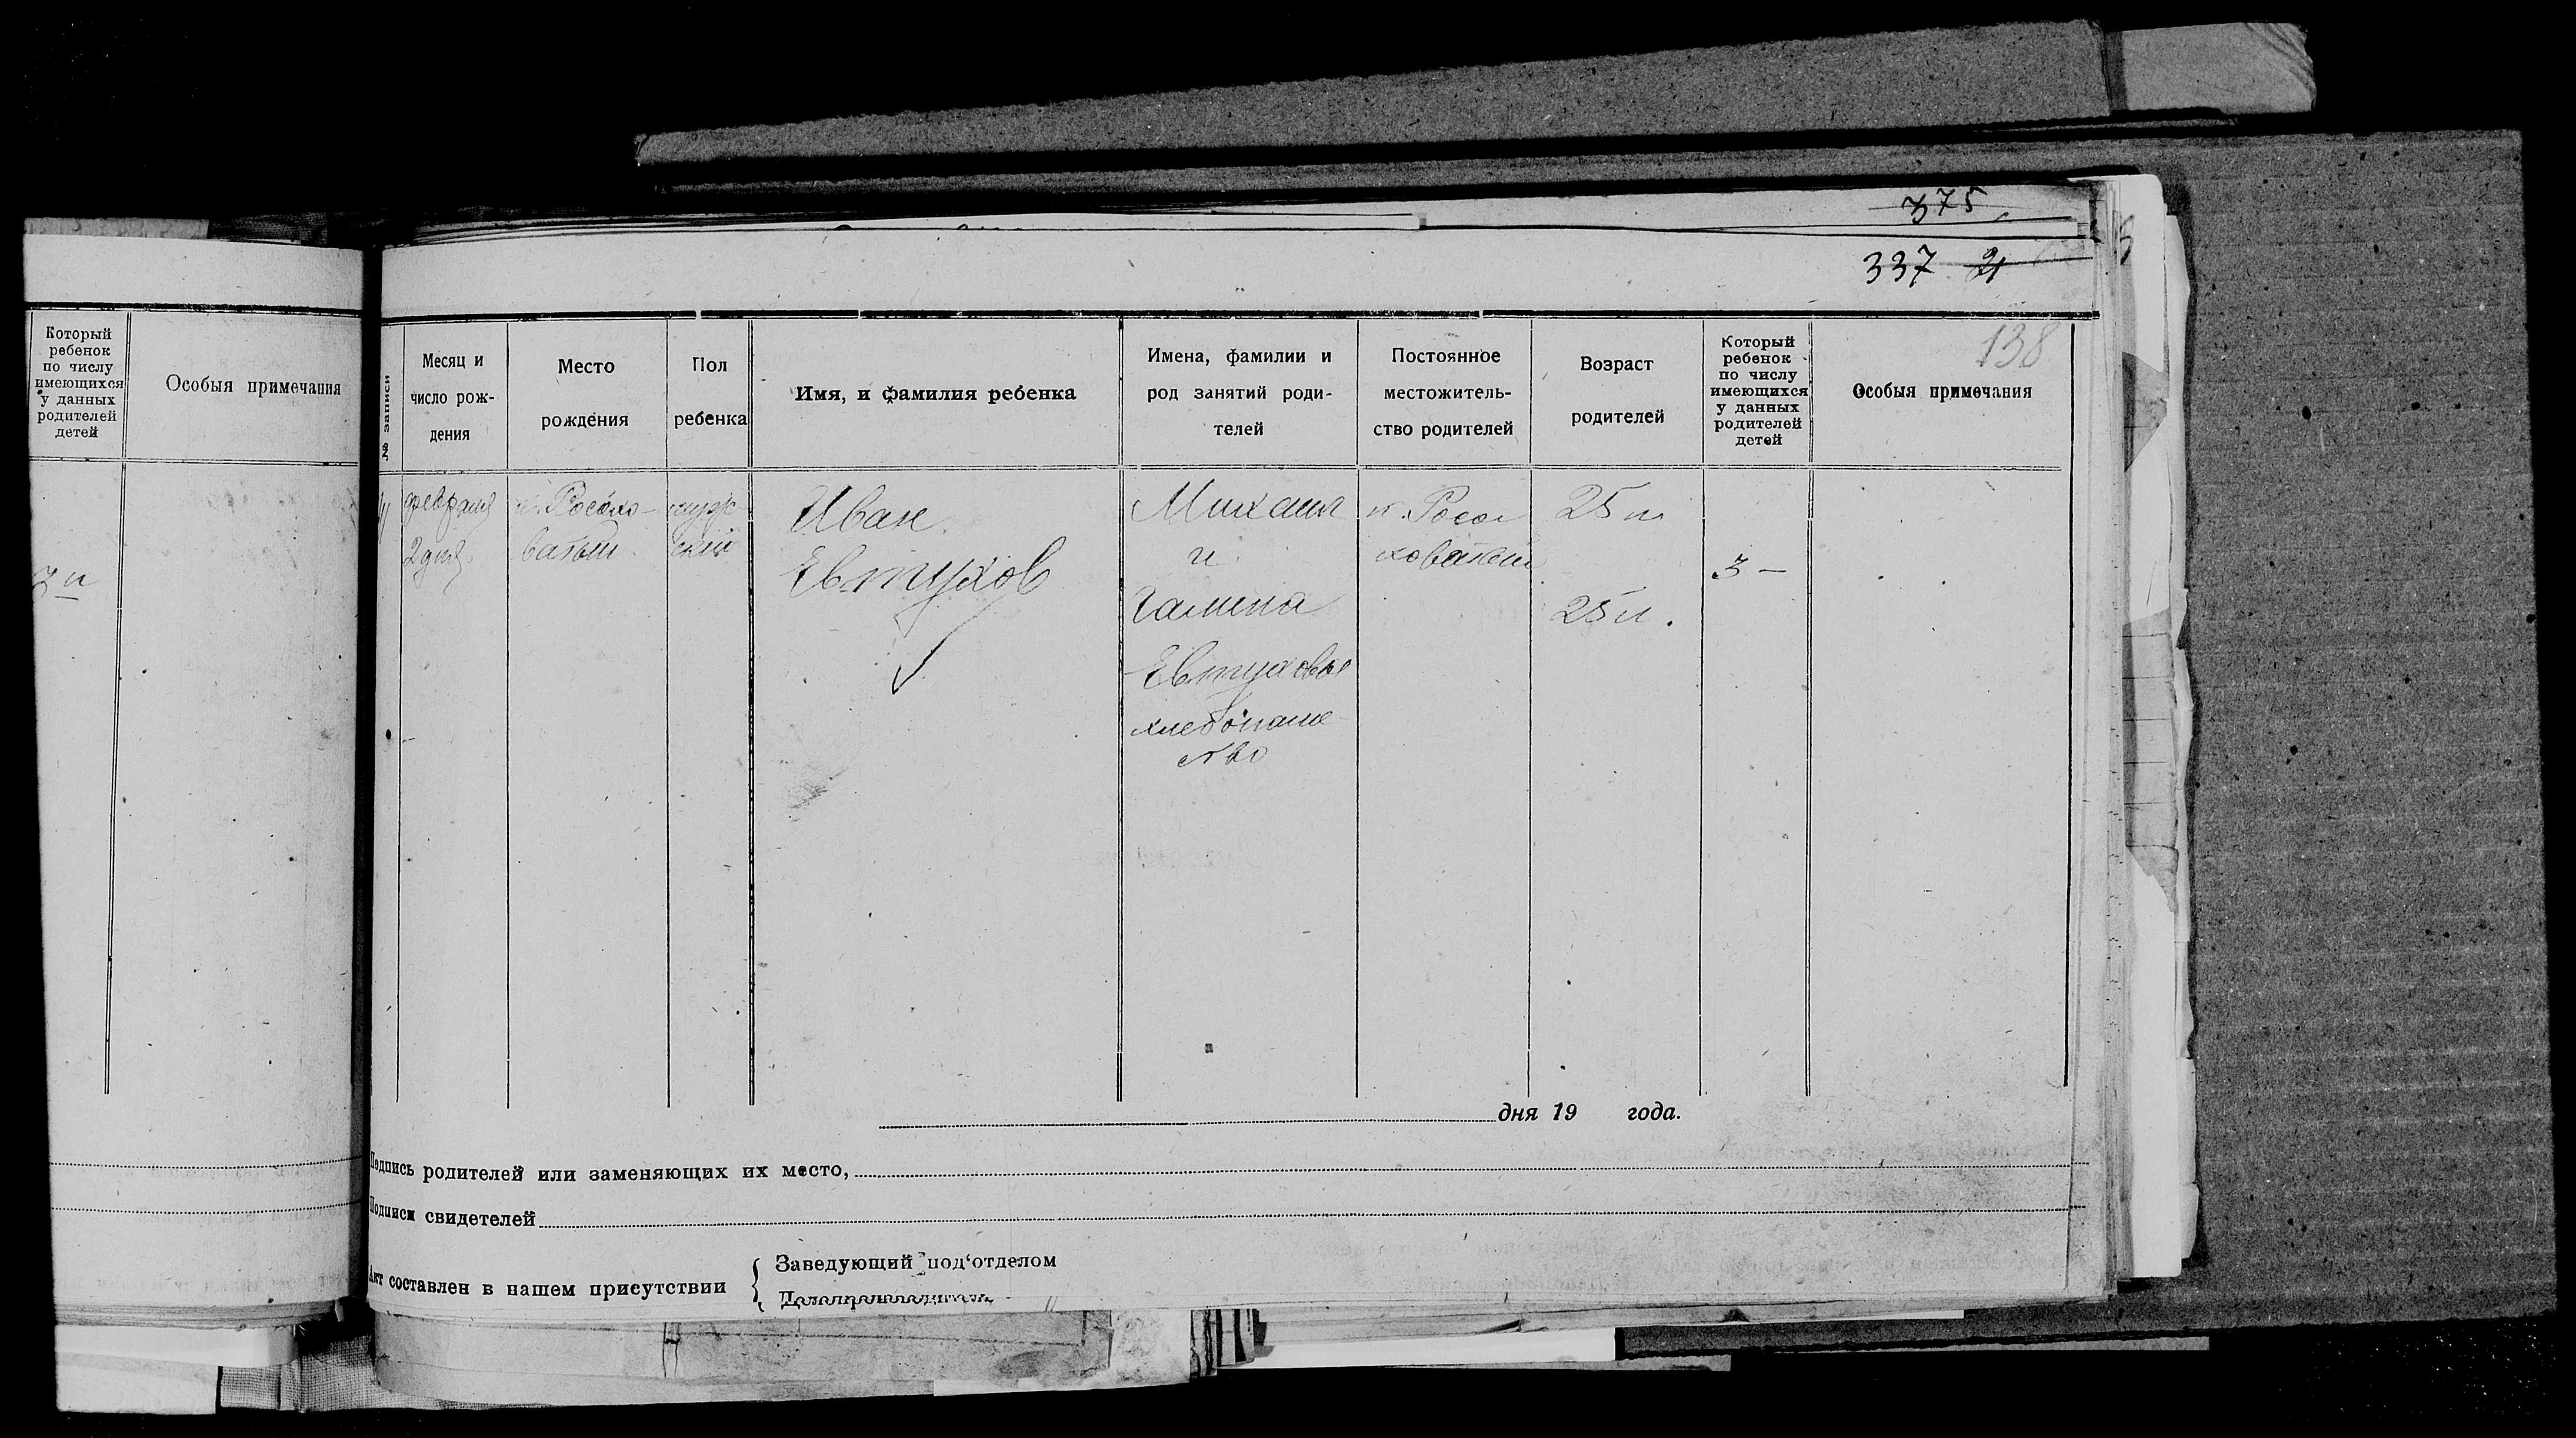 375
337 21
138
Который
ребенок
по числу
имеющихся
у данных
родителей
детей
Особыя примечания
3 и
№ записи
Месяц и
число рож-
дения
Место
рождения
Пол
ребенка
Имя, и фамилия ребенка
Имена, фамилии и
род занятий роди-
телей
Постоянное
местожитель-
ство родителей
Возраст
родителей
Который
ребенок
по числу
имеющихся
у данных
родителей
детей
Особыя примечания
февраля
2 дня
Росохо-
ватый
муж
ский
Иван
Евтухов
Михаил
и
Галина
Евтуховы
хлебопаше
ство
х. Росо
ховатый
25 л
25 л.
3 —
дня 19 года.
Подпись родителей или заменяющих их место,
Подписи свидетелей
Акт составлен в нашем присутствии
Заведующий под'отделом
Делопроизводитель